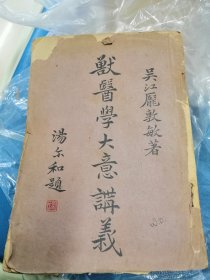 吳江龐敦敏著
獸醫學大意講義
湯尔和題